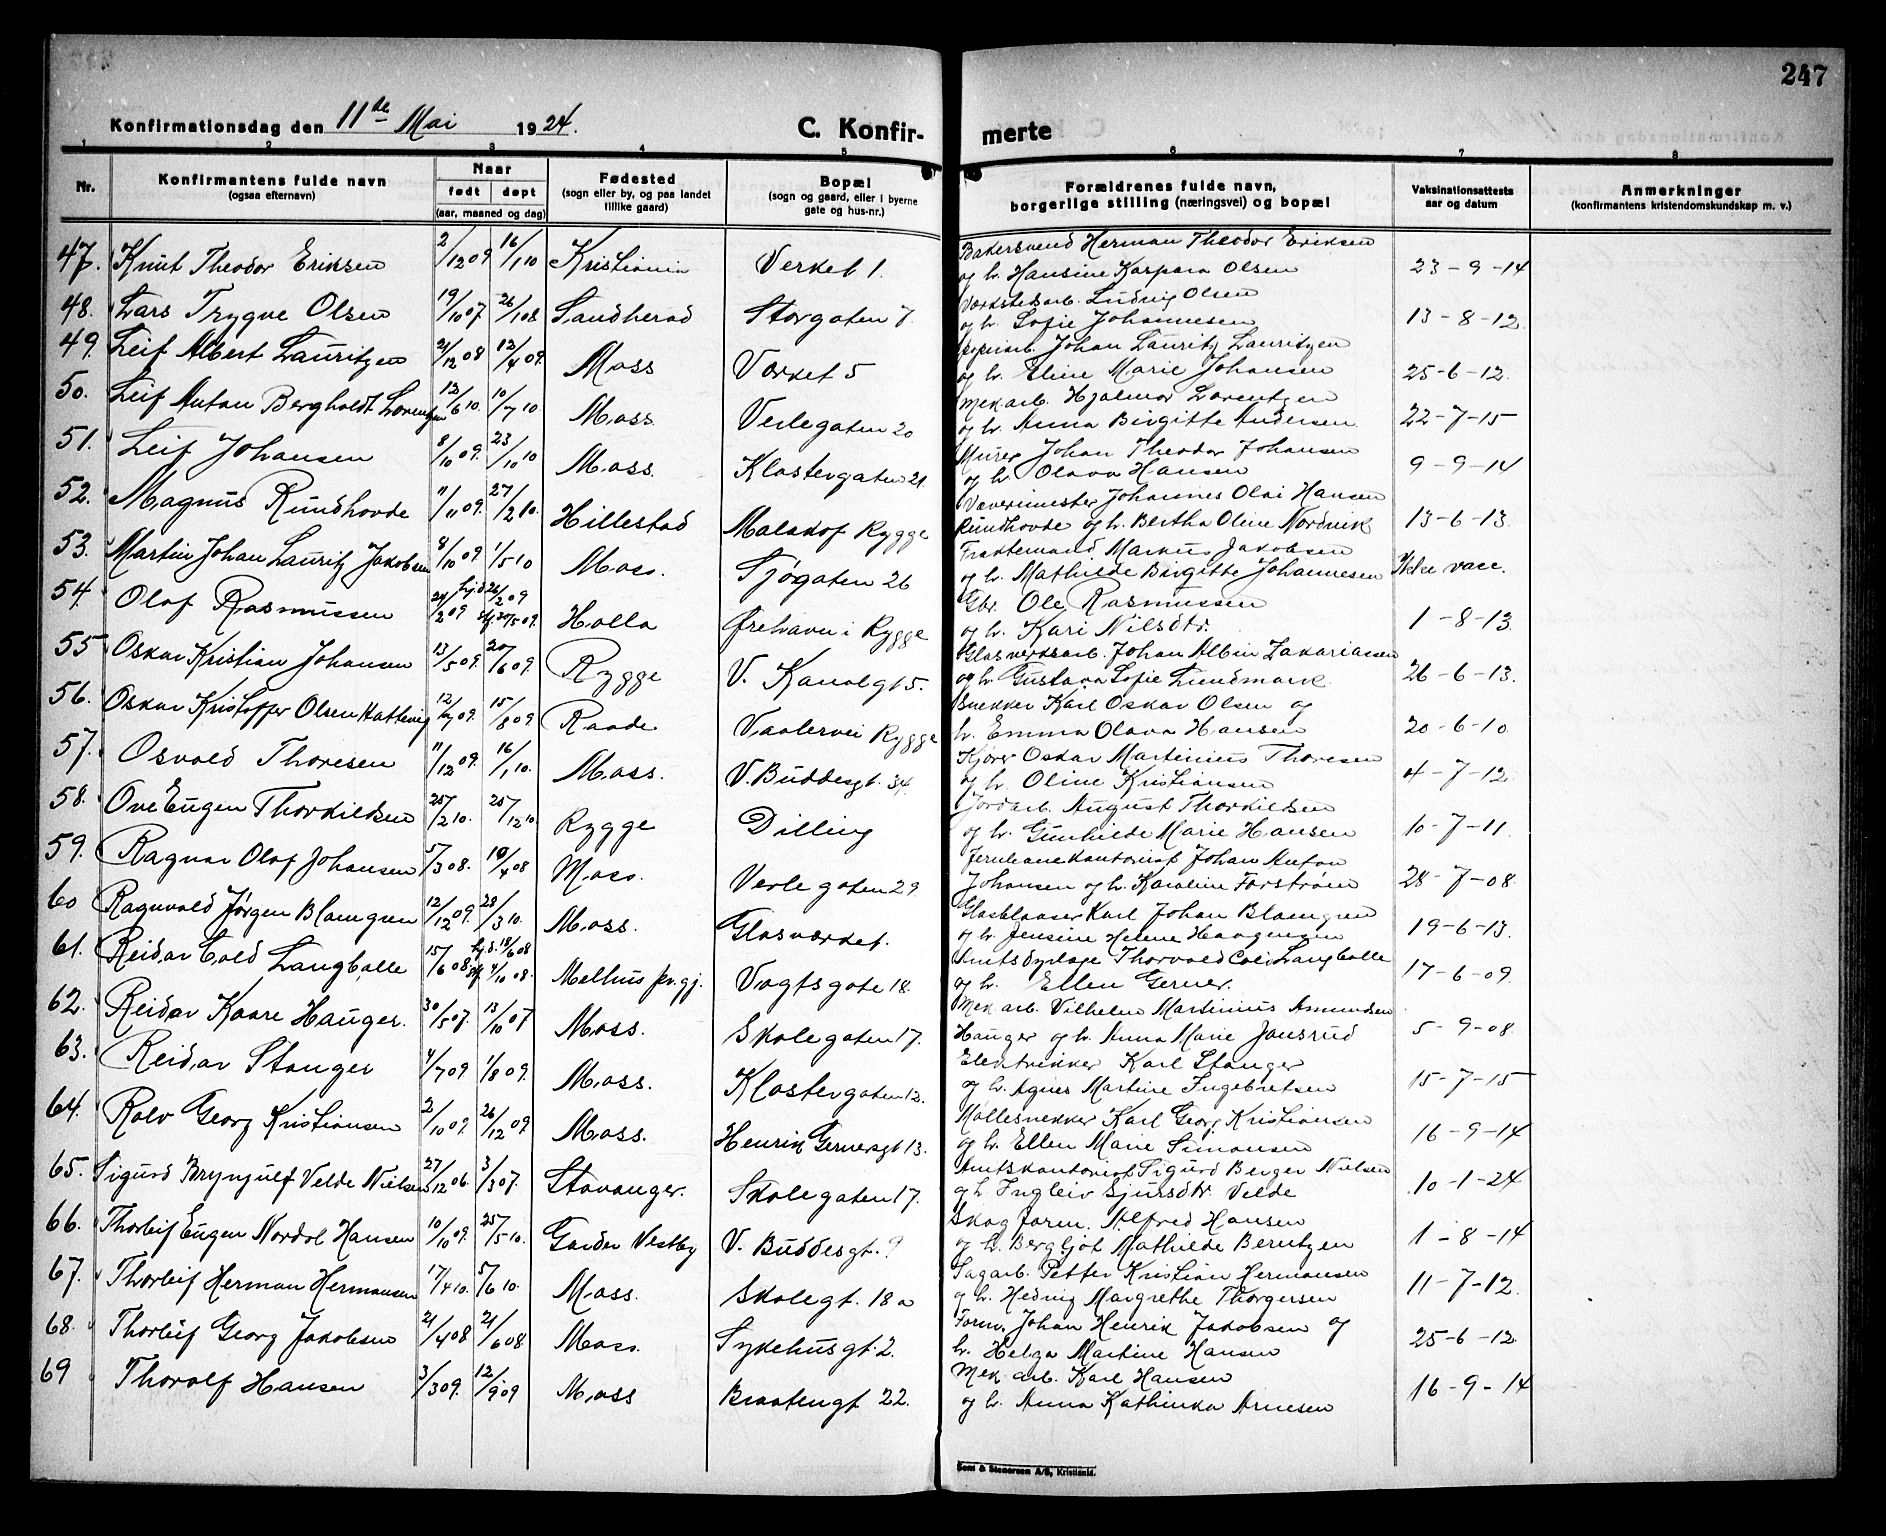 247
Konfirmationsdag den 11te Mai 1924. C. Konfirmerte
1 2 3 4 5 6 7 8
Nr. Konfirmantens fulde navn (ogsaa efternavn) Naar født døpt (aar, maaned og dag) Fødested (sogn eller by, og paa landet tillike gaard) Bopæl (sogn og gaard, eller i byerne gate og hus-nr.) Forældrenes fulde navn, borgerlige stilling (næringsvei) og bopæl Vaksinationsattests aar og datum Anmerkninger (konfirmantens kristendomskundskap m. v.)
47. Knut Theodor Eriksen 2/12 09 16/1 10 Kristiania Verket 1. Bakersvend Herman Theodor Eriksen
og h. Hansine Kaspara Olsen 23-9-14
48. Lars Trygve Olsen 19/10 07 26/1 08 Sandherad Storgaten 7 Værkstedsarb. Ludvig Olsen
og h. Sofie Johannesen 13-8-12.
49. Leif Albert Lauritzen 21/12 08 12/4 09. Moss Værket 5 Papirarb. Johan Lauritz Lauritzen
og h. Eline Marie Johansen 25-6-12.
50. Leif Anton Bergholdt Lorentzen 12/6 10. 10/7 10 Moss Verlegaten 20 Mek.arb. Hjalmar Lorentzen
og h. Anna Birgitte Andersen 22-7-15
51. Leif Johansen 8/10 09. 23/10 10 Moss. Klostergaten 21. Murer Johan Theodor Johansen
og h. Olava Hansen 9-9-14
52. Magnus Rundhovde 11/11 09. 27/2 10. Hillestad Malakof Rygge Vævermester Johannes Olai Hansen
Rundhovde og h. Bertha Oline Nordvik 13-6-13.
53. Martin Johan Lauritz Jakobsen 8/10 09. 1/5 10 Moss. Sjøgaten 26 Fragtemand Markus Jakobsen
og h. Mathilde Birgitte Johannesen Ikke vacc.
54. Olaf Rasmussen 24/2 09 hj.d 26/2 09 st.f. 30/5 09. Holla Ørehavn i Rygge Gbr. Ole Rasmussen
og h. Kari Nilsdtr. 1-8-13.
55 Oskar Kristian Johansen 13/5 09. 20/6 09. Rygge V. Kanalgt 5. Glasverksarb. Johan Albin Zakariassen
og h. Gustava Sofie Lundmark 26-6-13.
56. Oskar Kristoffer Olsen Hattevig 12/7 09. 15/8 09 Raade Vaalervei Rygge Snekker Karl Oskar Olsen og
h. Emma Olava Hansen 20-6-10.
57. Osvald Thoresen 11/12 09. 16/1 10. Moss. V. Buddesgt. 34. Kjører Oskar Martinius Thoresen
og h. Oline Kristiansen 4-7-12.
58. Ove Eugen Thorkildsen 25/2 10. 25/12 10 Rygge Dilling Jordarb. August Thorkildsen
og h. Gunhilde Marie Hansen 10-7-11.
59. Ragnar Olaf Johansen 5/3 08. 10/4 08 Moss. Verlegaten 29 Jernbanekontorist Johan Anton
Johansen og h. Karoline Forstrøm 28-7-08.
60 Ragnvald Jørgen Blomgren 12/12 09. 28/3 10. Moss. Glasværket. Glasblaaser Karl Johan Blomgren
og h. Jensine Helene Haagensen 19-6-13.
61. Reidar Cold Langballe 15/6 08 hj.d. 18/6 08 st.f. 4/10 08. Melhus pr.gj. Vogtsgate 18. Amtsdyrlæge Thorvald Cold Langballe
og h. Ellen Gerner. 17-6-09
62. Reidar Kaare Hauger. 30/5 07. 13/10 07 Moss. Skolegaten 17. Mek arb. Vilhelm Martinius Amundsen
Hauger og h. Anna Marie Jonsrud 5-9-08.
63. Reidar Stanger 4/7 09. 1/8 09. Moss. Klostergaten 12. Elektrikker Karl Stanger
og h. Agnes Martine Ingebretsen 15-7-15
64. Rolv Georg Kristiansen 2/10 09. 26/12 09. Moss. Henrik Gernersgt 13. Møllesnekker Karl Georg Kristiansen
og h. Ellen Marie Simonsen 16-9-14
65. Sigurd Brynjulf Velde Nielsen 27/12 06. 3/3 07. Stavanger. Skolegaten 17. Amtskontorist Sigurd Berger Nielsen
og h. Ingleiv Sjursdtr. Velde 10-1-24
66. Thorleif Eugen Nordal Hansen 10/10 09. 25/5 10. Garder Vestby V. Buddesgt. 9 Skogform. Alfred Hansen
og h. Bergljot Mathilde Berntzen 1-8-14
67. Thorleif Herman Hermansen 17/4 10. 5/6 10. Moss. Skolegt. 18a Sagarb. Petter Kristian Hermansen
og h. Hedvig Margrethe Thorgersen 11-7-12.
68. Thorleif Georg Jakobsen 21/4 08 21/6 08. Moss. Sykehusgt. 2. Form. Johan Henrik Jakobsen og
h. Helga Martine Hansen 25-6-12
69 Thoralf Hansen 3/3 09. 12/9 09 Moss Braatengt 22. Mek arb. Karl Hansen
og h. Anna Kathinka Arnesen 16-9-14
Sem & Stenersen A/S, Kristiania.